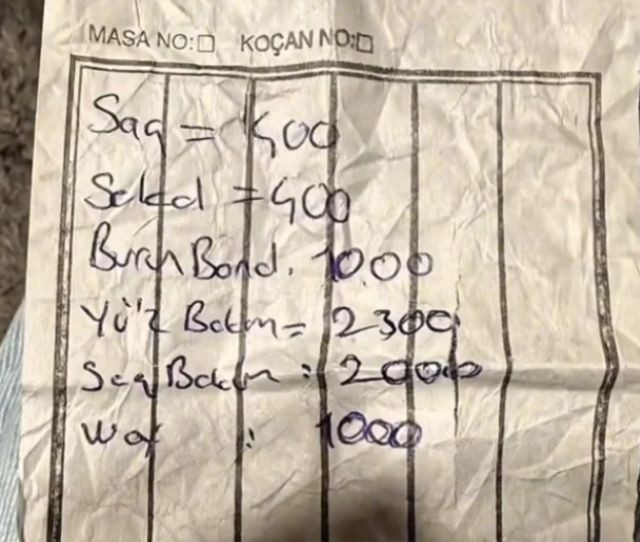 MASA NO: KOÇAN NO:
Saç = 400
Sakal = 400
Burun Bond. 1000
Yüz Bakım = 2300
Saç Bakım : 2000
Wax : 1000